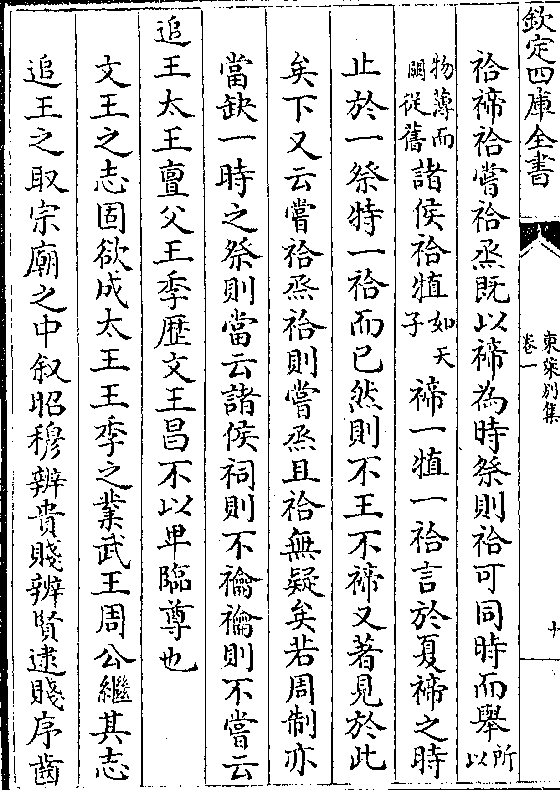 欽定四庫全書
東萊別集
卷一
十
祫禘祫嘗祫烝既以禘為時祭則祫可同時而舉所以
物薄而闕從舊諸侯祫犆如天子禘一犆一祫言於夏禘之時
止於一祭特一祫而已然則不王不禘又著見於此
矣下又云嘗祫烝祫則嘗烝且祫無疑矣若周制亦
當缺一時之祭則當云諸侯祠則不禴禴則不嘗云
追王太王亶父王季歷文王昌不以卑臨尊也
文王之志固欲成太王王季之業武王周公繼其志
追王之取宗廟之中叙昭穆辨貴賤辨賢逮賤序齒